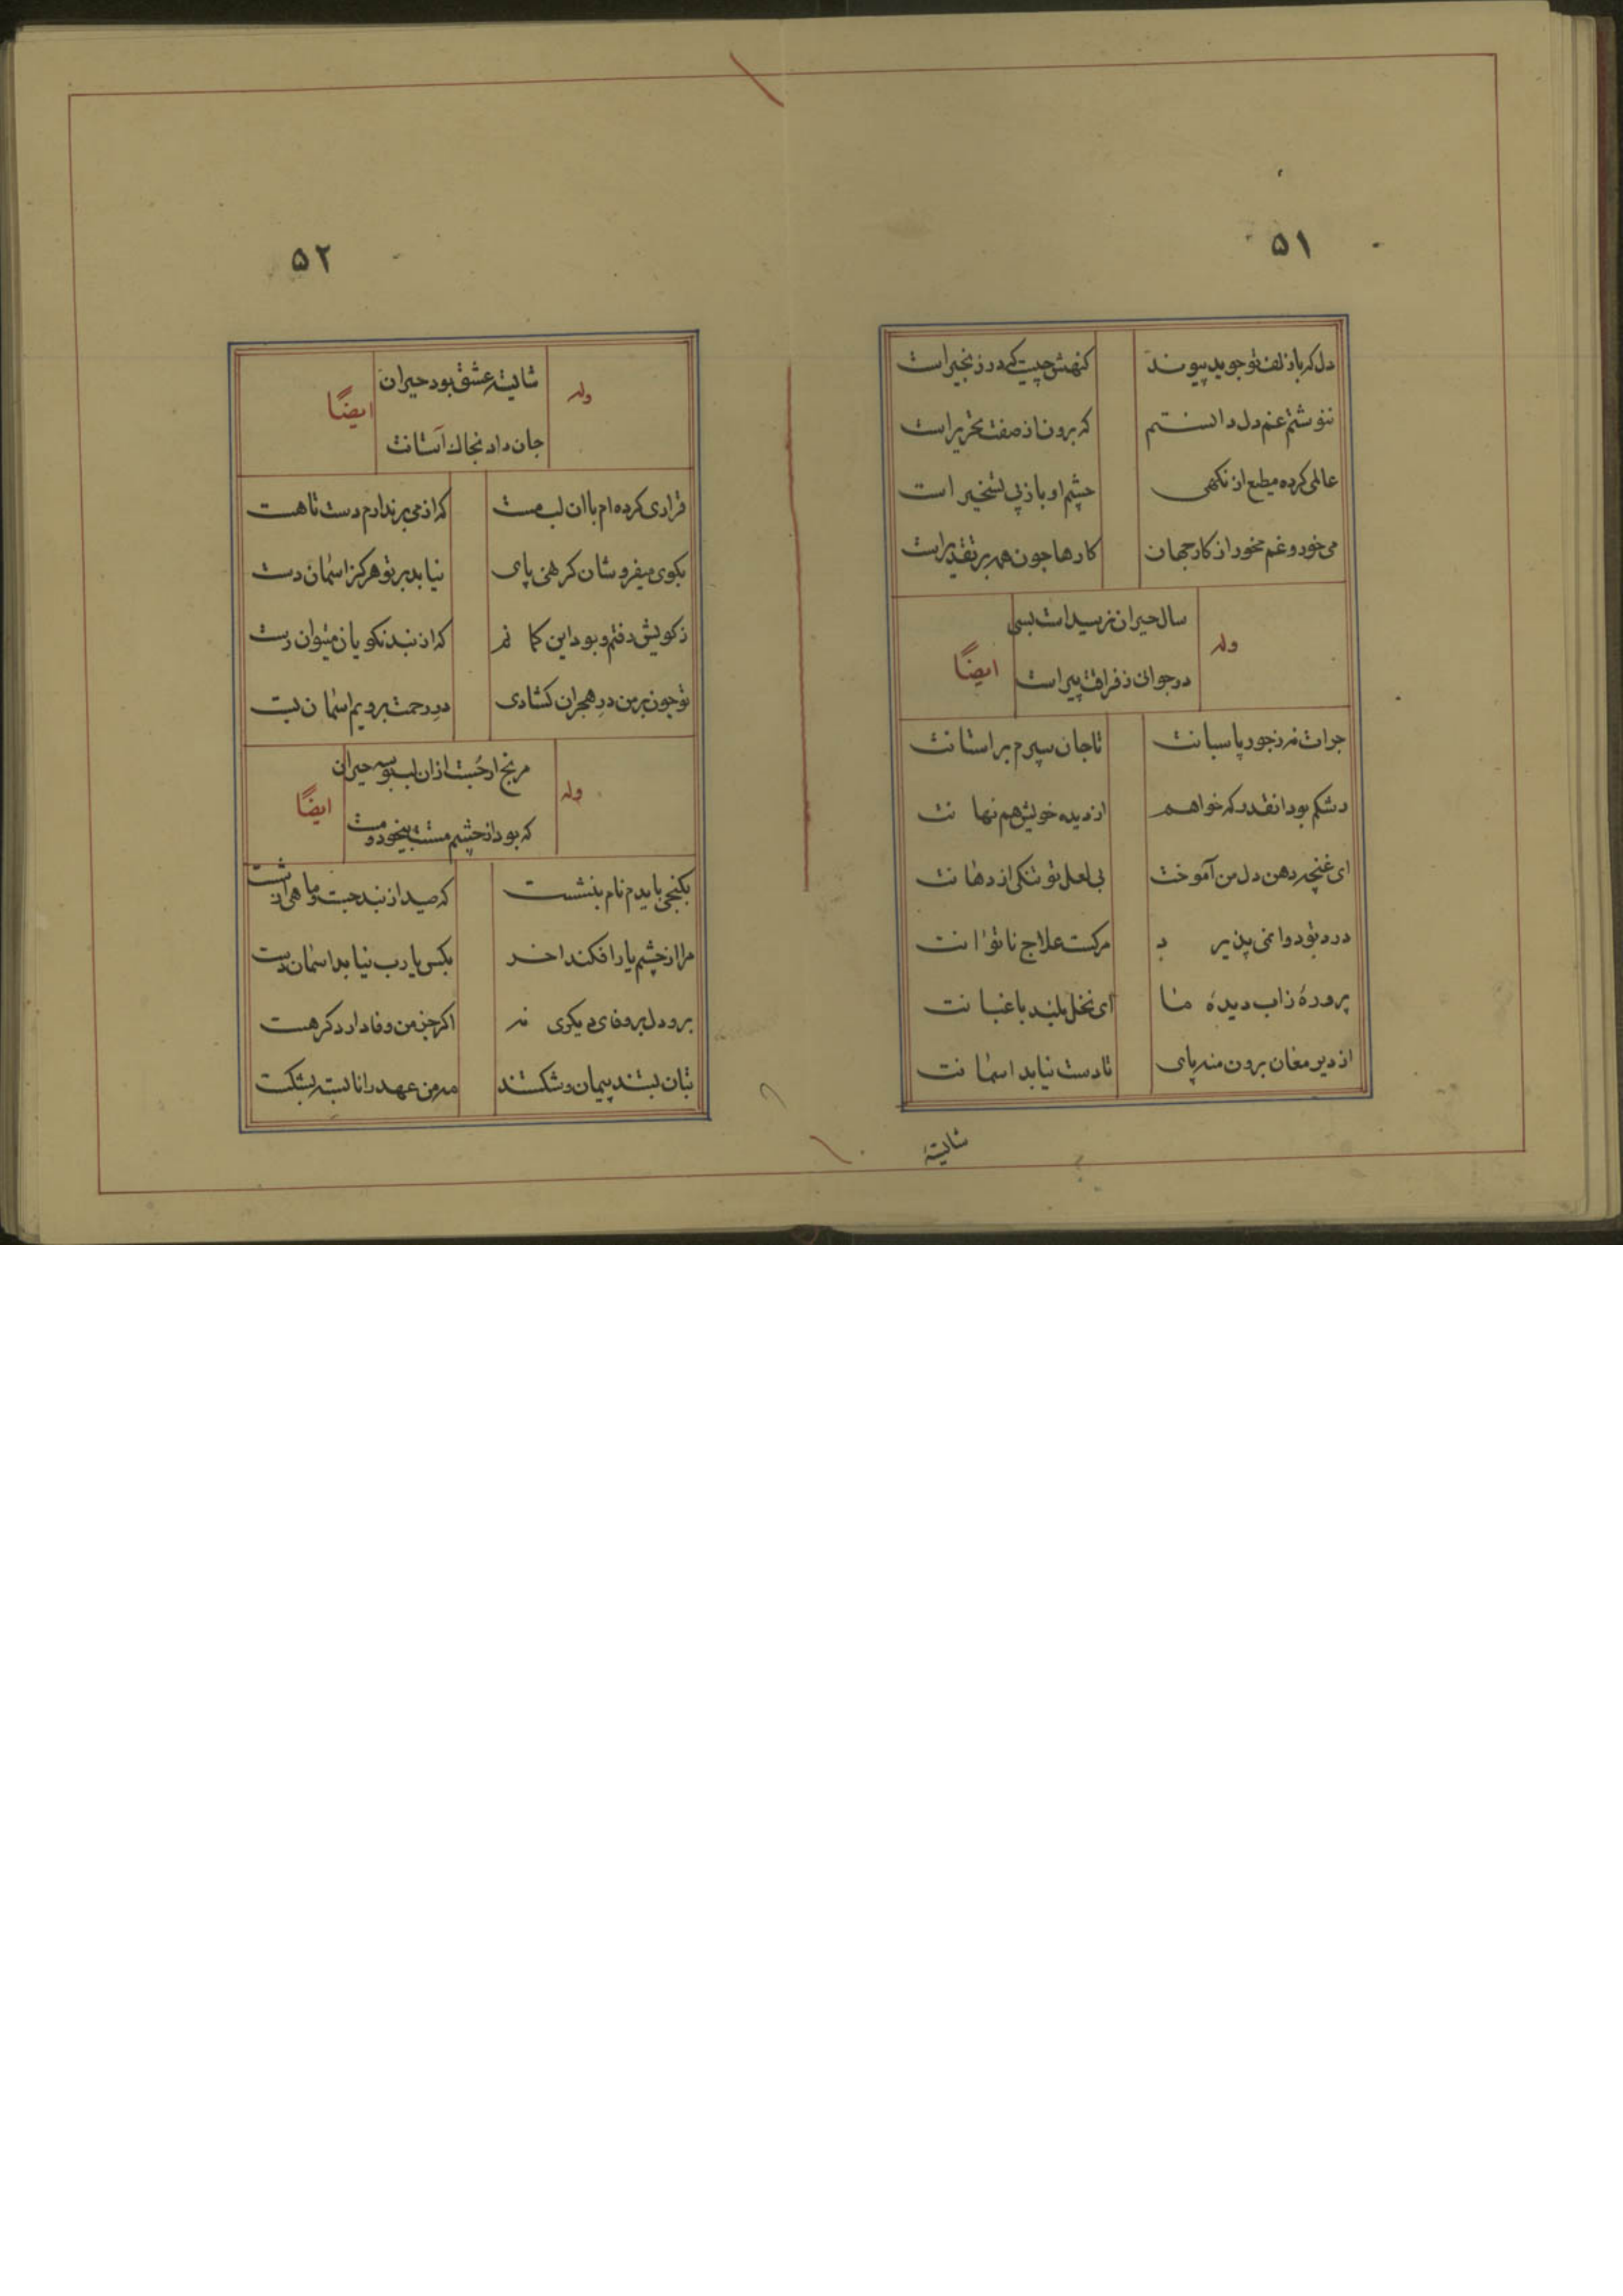 ۵۱
دل که باز زلف تو جوید پیوند کنهش چیست که در زنجیر است
ننوشتم غم دل دانستم که برون از صفت تحریر است
عالمی کرده مطیع از نکهی چشم او باز پی تسخیر است
می خور و غم مخور از کار جهان کارها چون همه بر تقدیر است
وله
سال حیران نرسید است بسی
در جوان ز فراقت پیر است
ایضًا
جرات نه ز جور پاسبانت تا جان سپرم بر استانت
رشکم بود انقدر که خواهم از دیده خویش هم نهانت
ای غنچه دهن دل من آموخت بی لعل تو تنکی از دهانت
درد تو دوا نمی پذیرد مرکست علاج ناتوانت
پروردهٔ زاب دیدهٔ ما ای نخل بلند باغبانت
از دیر مغان برون منه پای تا دست نیابد اسمانت
شایستهٔ
۵۲
وله
شایستهٔ عشق بود حیران
جان داد بخاک آستانت
ایضًا
قراری کرده ام با ان لب مست که از می برندارم دست تا هست
بکوی میفروشان کر نهی پای نیابد بر تو هرکز اسمان دست
ز کویش رفتم و بود این کمانم که از بند نکویان میتوان رست
تو چون بر من در هجران کشادی در رحمت برویم اسمان بست
وله
مرنج ار جُست از ان لب بوسه حیران
که بود از چشم مستت بیخود و مست
ایضًا
بکنجی بایدم ناکام بنشست که صید از بند جست و ماهی از شست
مرا از چشم یار افکند اخر بکس یارب نیابد اسمان دست
برو دل بر وفای دیکری نه اکر جز من وفاداری دکر هست
بتان بستند پیمان و شکستند مه من عهد را نابسته بشکست